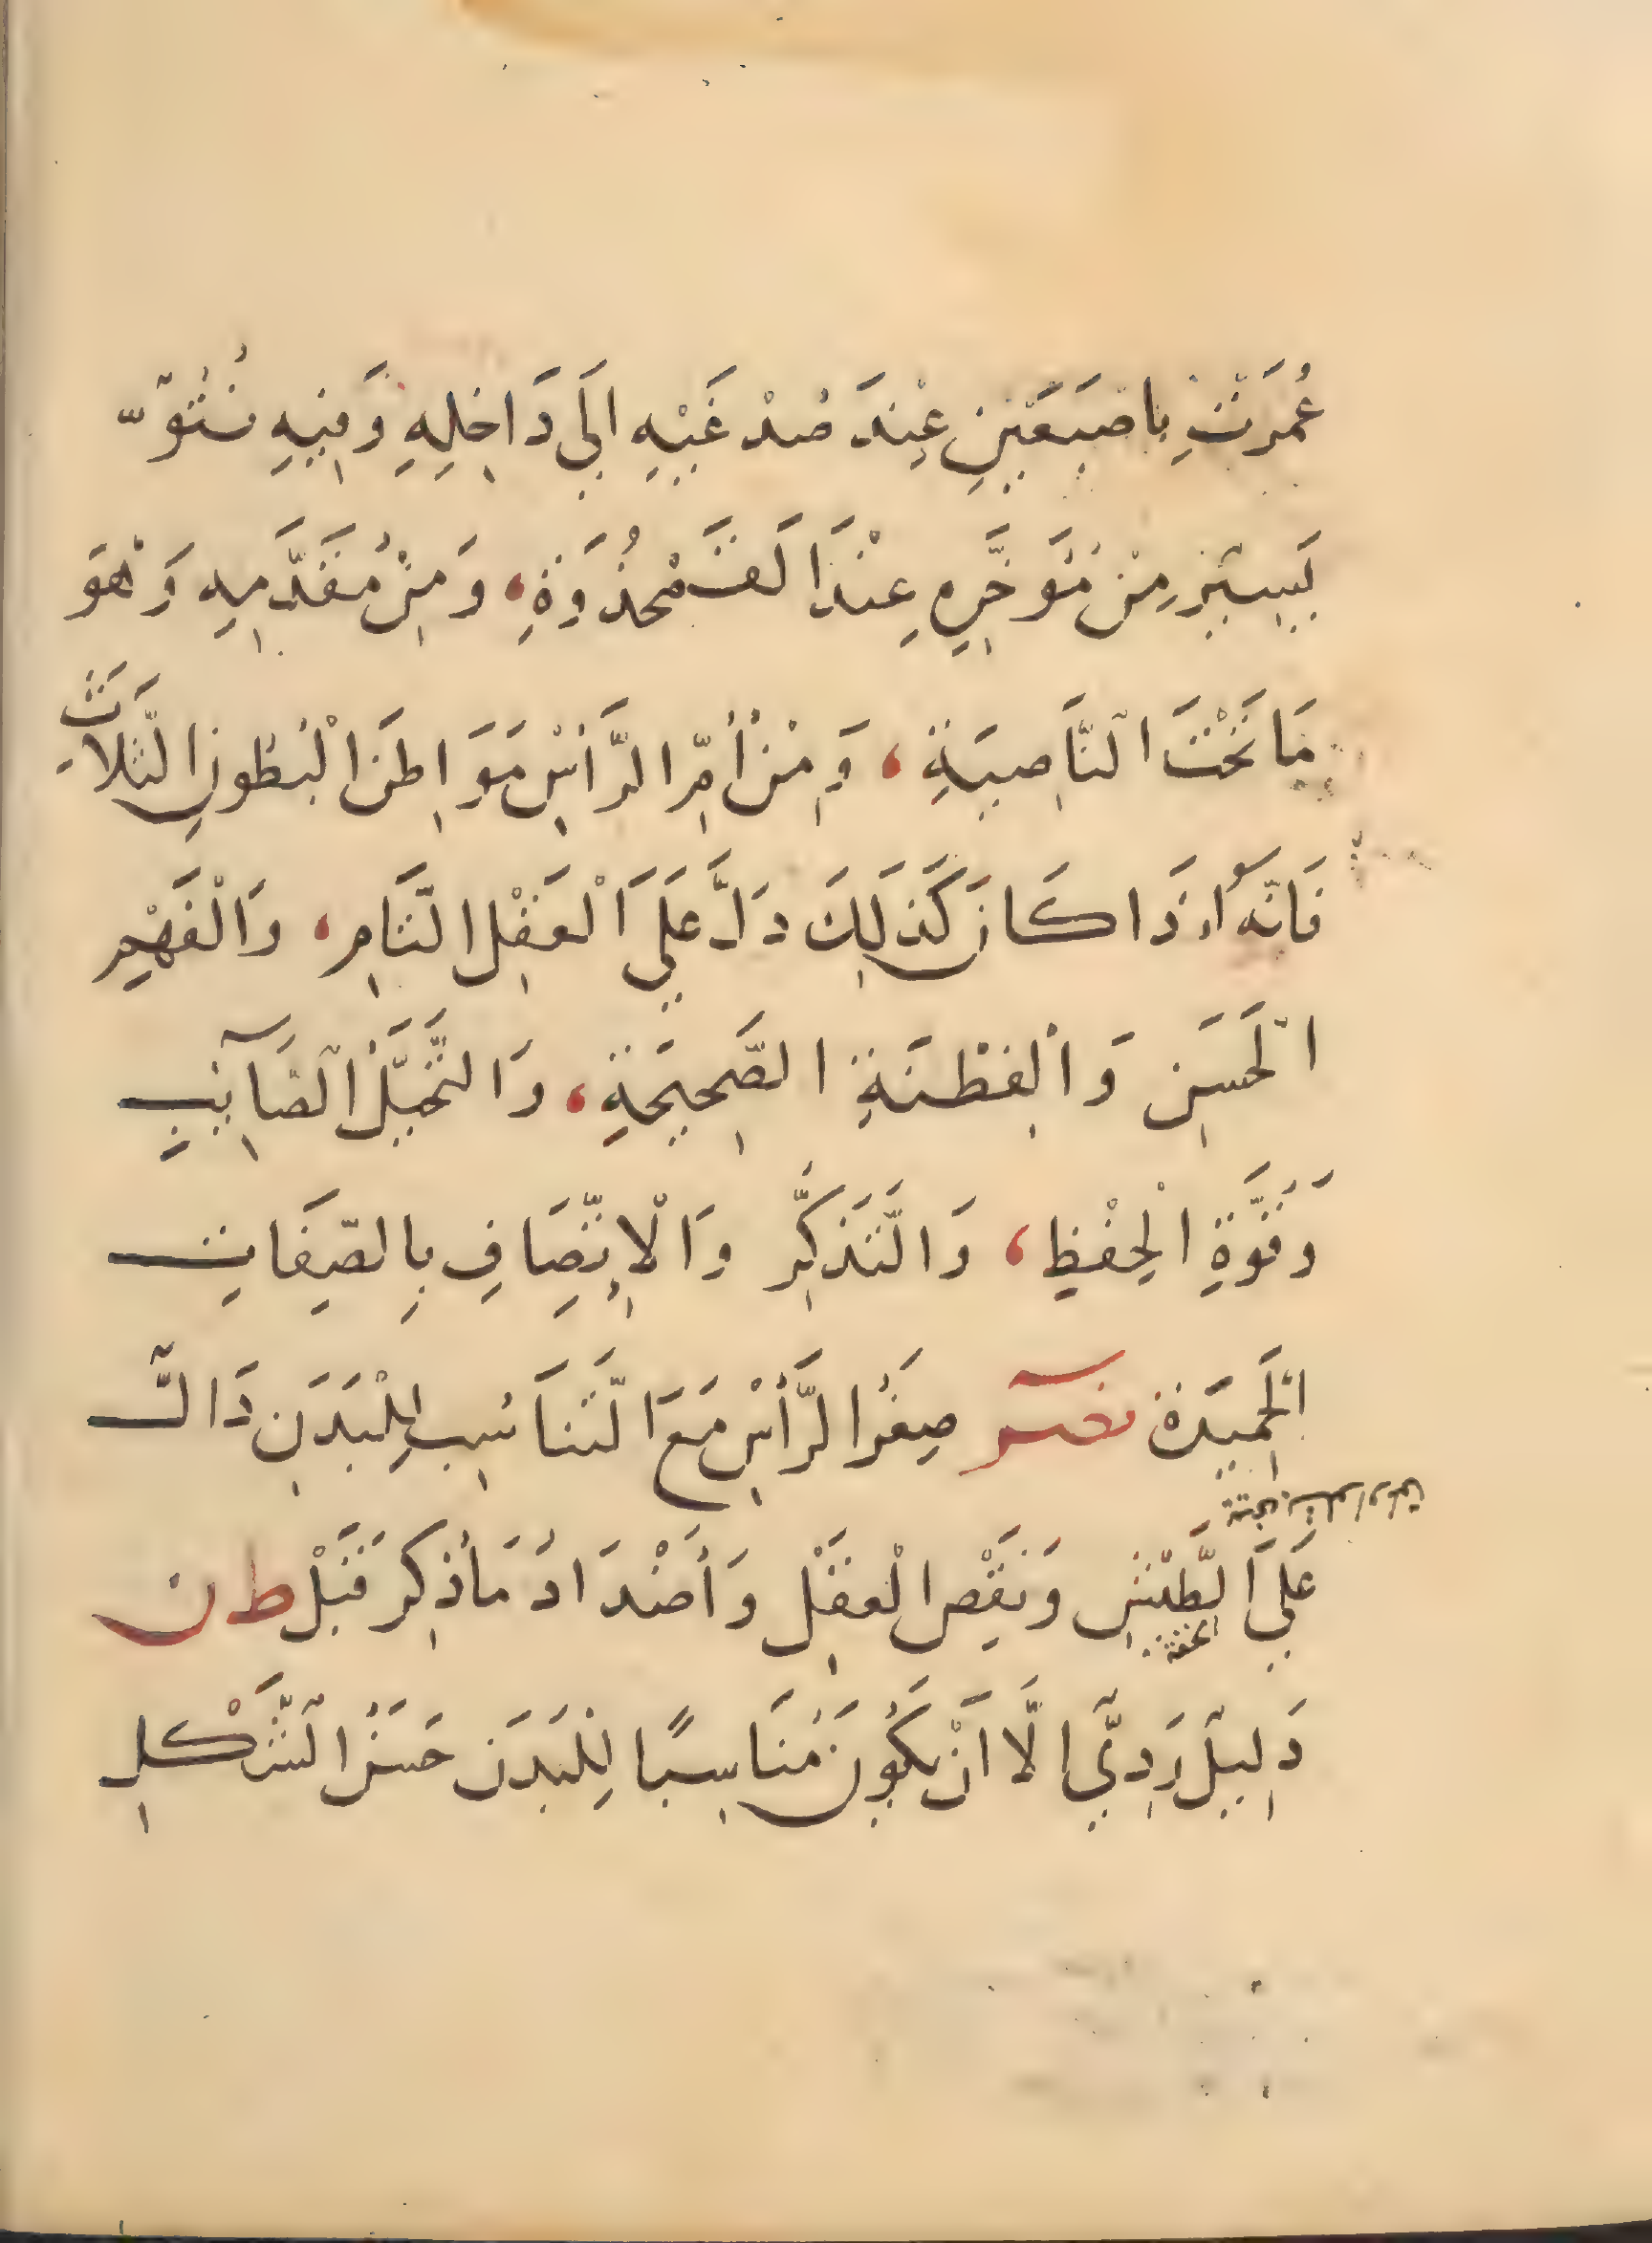 غُمِزَتْ بِاصْبَعَيْنِ عِنْدَ صُدْغَيْهِ اِلَي دَاخِلِهِ وَفِيهِ نُتُوٌّ
يَسِيْرٌ مِنْ مُؤَخَّرِهِ عِنْدَ الْقَمَحْدُوَةِ، وَمِنْ مُقَدَّمِهِ وَهْوَ
مَا تَحْتَ النَّاصِيَةِ، وَمِنْ أُمِّ الرَّأْسِ مَوَاطِنَ الْبُطُونِ الثَّلَاثِ
فَانَّه اِذَا كَانَ كَذَلِكَ دَلَّ عَلَي الْعَقْلِ التَّامِ، وَالْفَهْمِ
الْحَسَنِ وَالْفِطْنَةِ الصَّحِيحَةِ، وَالتَّخَيُّلِ الصَّآيِبِ
وَقُوَّةِ الْحِفْظِ، وَالتَّذَكُّرِ وَالْاِتِّصَافِ بِالصِّفَاتِ
الْحَمِيدَةِ صِغَرُ الرَّأْسِ مَعَ التَّنَاسُبِ لِلْبَدَنِ دَالٌّ
عَلَي الطَّيْشِ وَنَقْصِ الْعَقْلِ وَأَضْدَادَ مَا ذُكِرَ قَبْلُ ط ن
الخفة
دَلِيلٌ رَدِيٌّ اِلَّا اَنْ يَكُونَ مُنَاسِبًا لِلْبَدَنِ حَسَنَ الشَّكْلِ